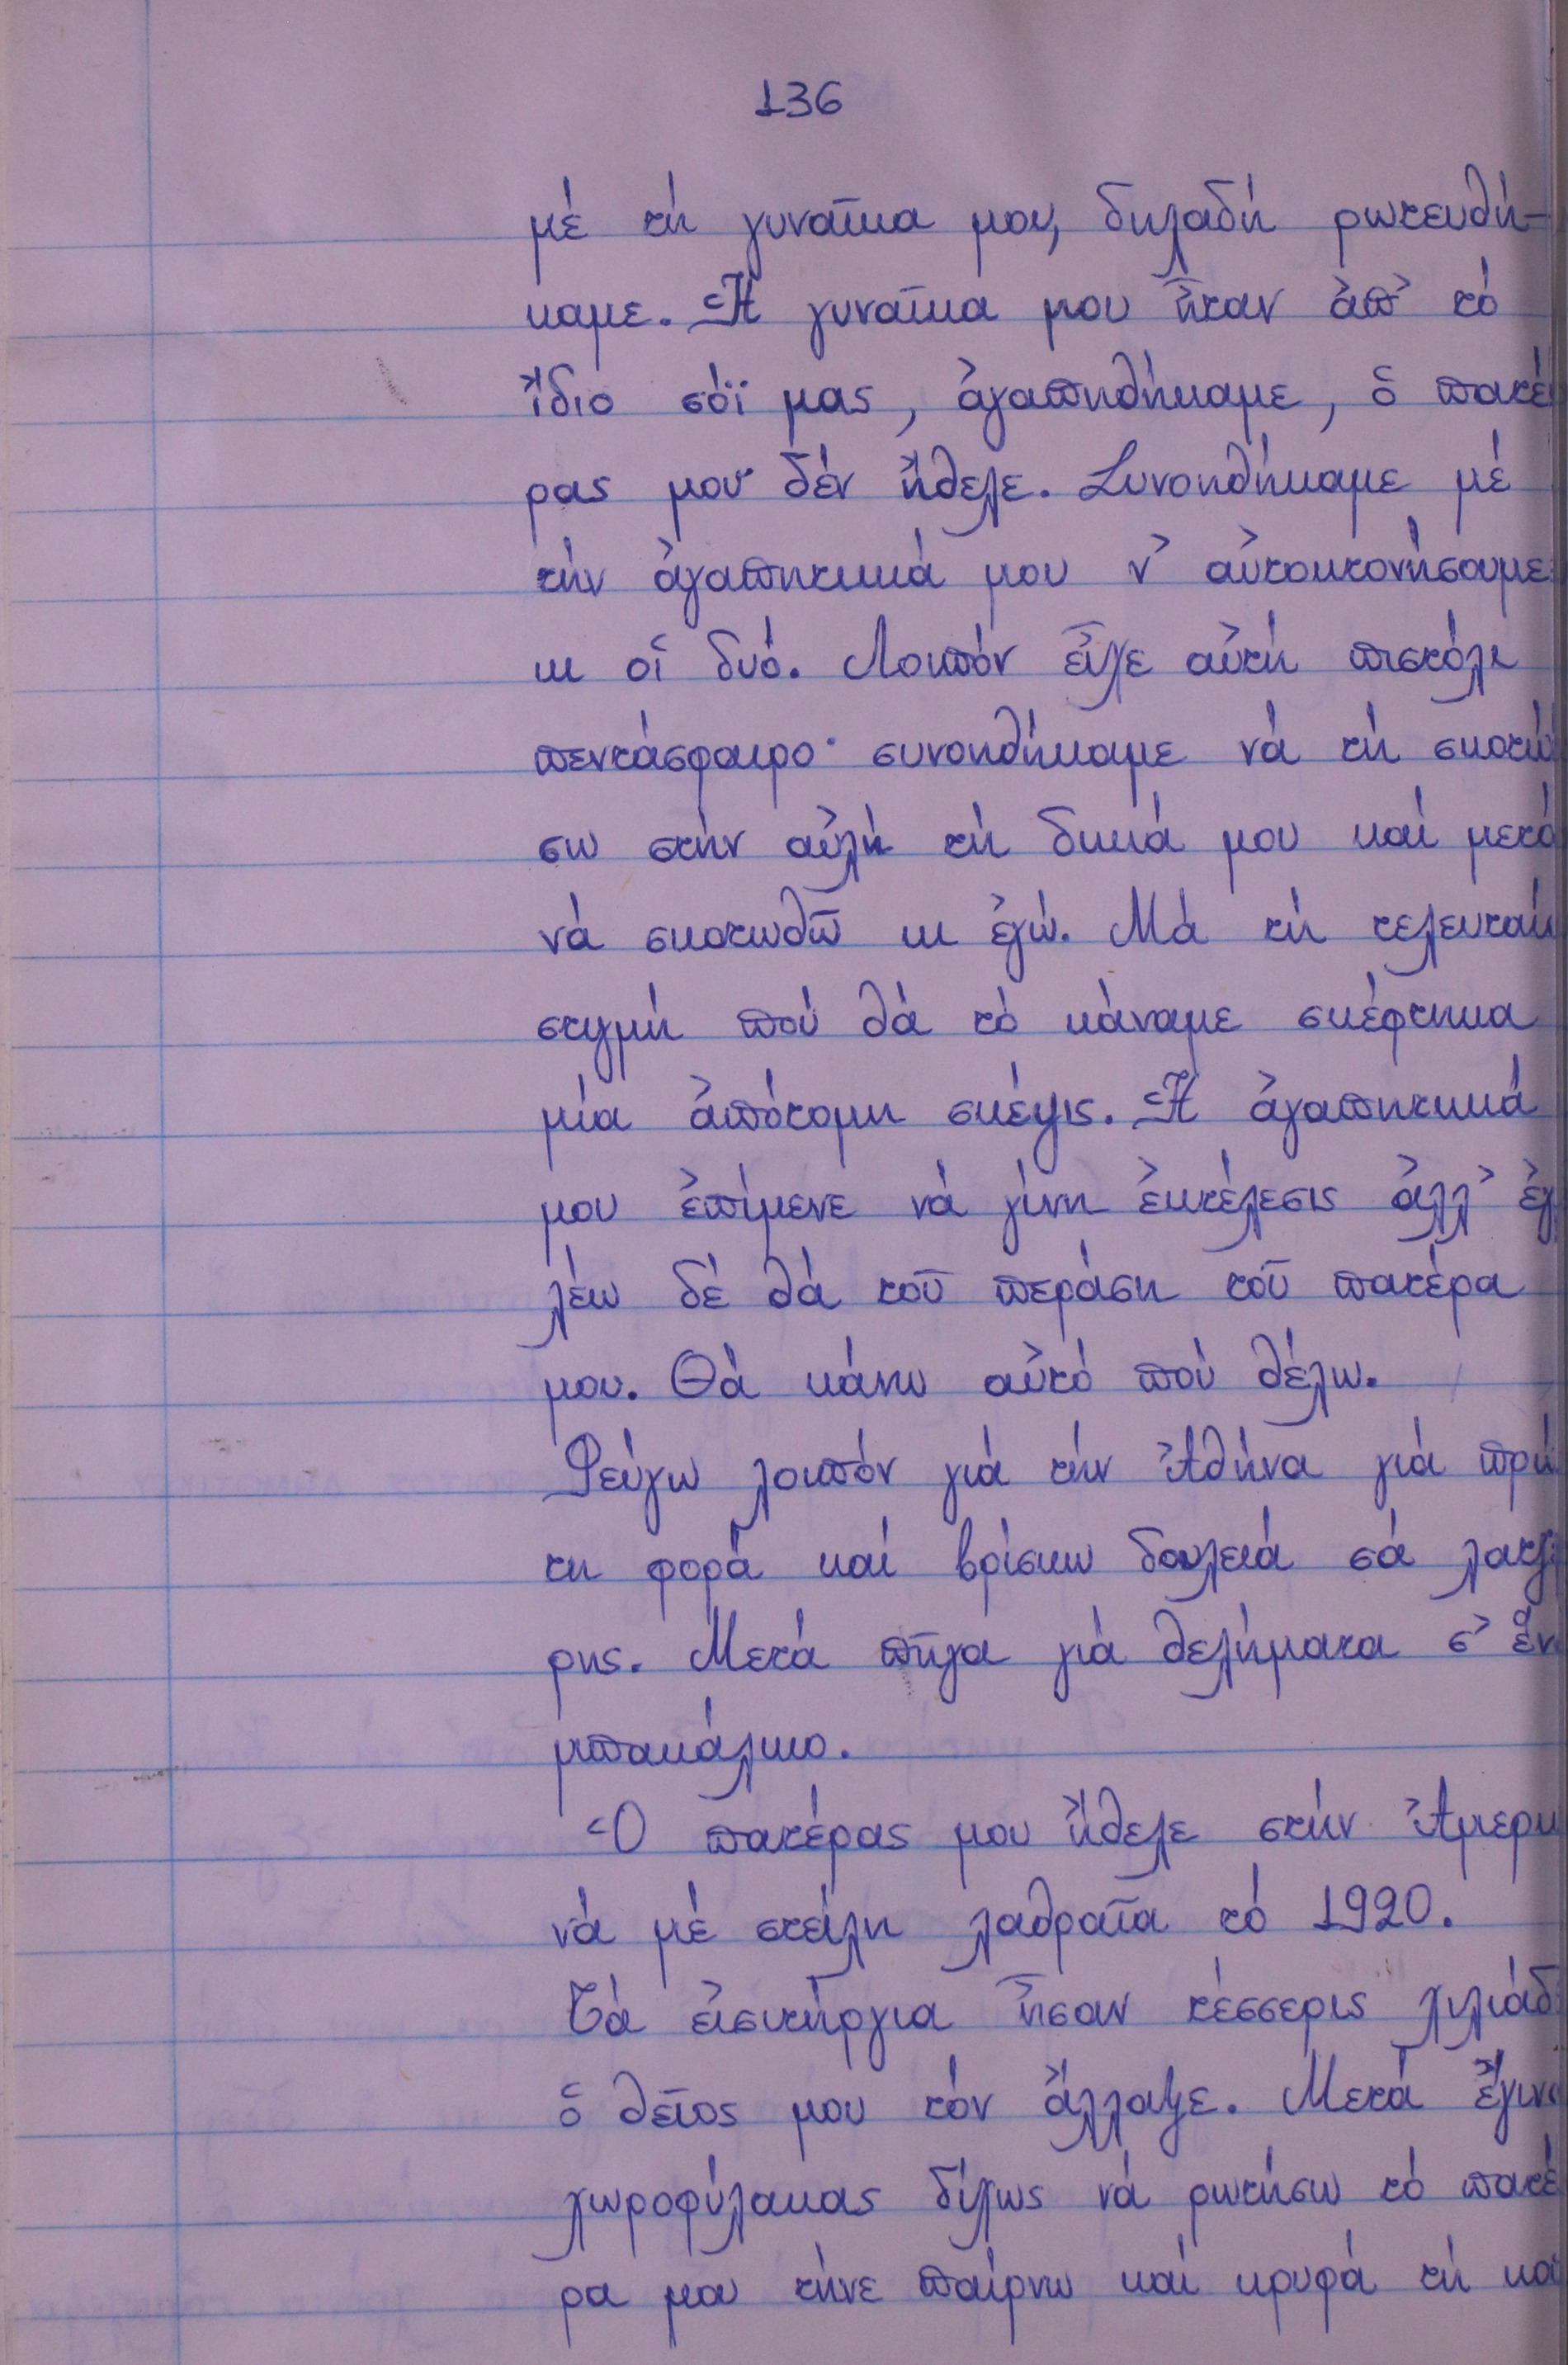 136
μέ τή γυναῖκα μου, δηλαδή ρωτευθή-
καμε. Ἡ γυναῖκα μου ἦταν ἀπ' τό
ἴδιο σόϊ μας, ἀγαπηθήκαμε, ὁ πατέ
ρας μου δέν ἤθελε. Συνοηθήκαμε μέ
τήν ἀγαπητικιά μου ν' αὐτοκτονήσουμε
κι οἱ δυό. Λοιπόν εἶχε αὐτή πιστόλι
πεντάσφαιρο· συνοηθήκαμε νά τή σκοτώ
σω στήν αὐλή τή δικιά μου καί μετά
νά σκοτωθῶ κι ἐγώ. Μά τή τελευταί
στιγμή πού θά τό κάναμε σκέφτηκα
μία ἀπότομη σκέψις. Ἡ ἀγαπητικιά
μου ἐπίμενε νά γίνη ἐκτέλεσις ἀλλ' ἐγ
λέω δέ θά τοῦ περάση τοῦ πατέρα
μου. Θά κάνω αὐτό πού θέλω.
Φεύγω λοιπόν γιά τήν Ἀθήνα γιά πρώ
τη φορά καί βρίσκω δουλειά σά λατζέ
ρης. Μετά πῆγα γιά θελήματα σ' ἕν
μπακάλικο.
Ὁ πατέρας μου ἤθελε στήν Ἀμερι
νά μέ στείλη λαθραῖα τό 1920.
Τά εἰσιτήργια ἦσαν τέσσερις χιλιάδ
ὁ θεῖος μου τόν ἄλλαψε. Μετά ἔγινα
χωροφύλακας δίχως νά ρωτήσω τό πατέ
ρα μου τήνε παίρνω καί κρυφά τή κο